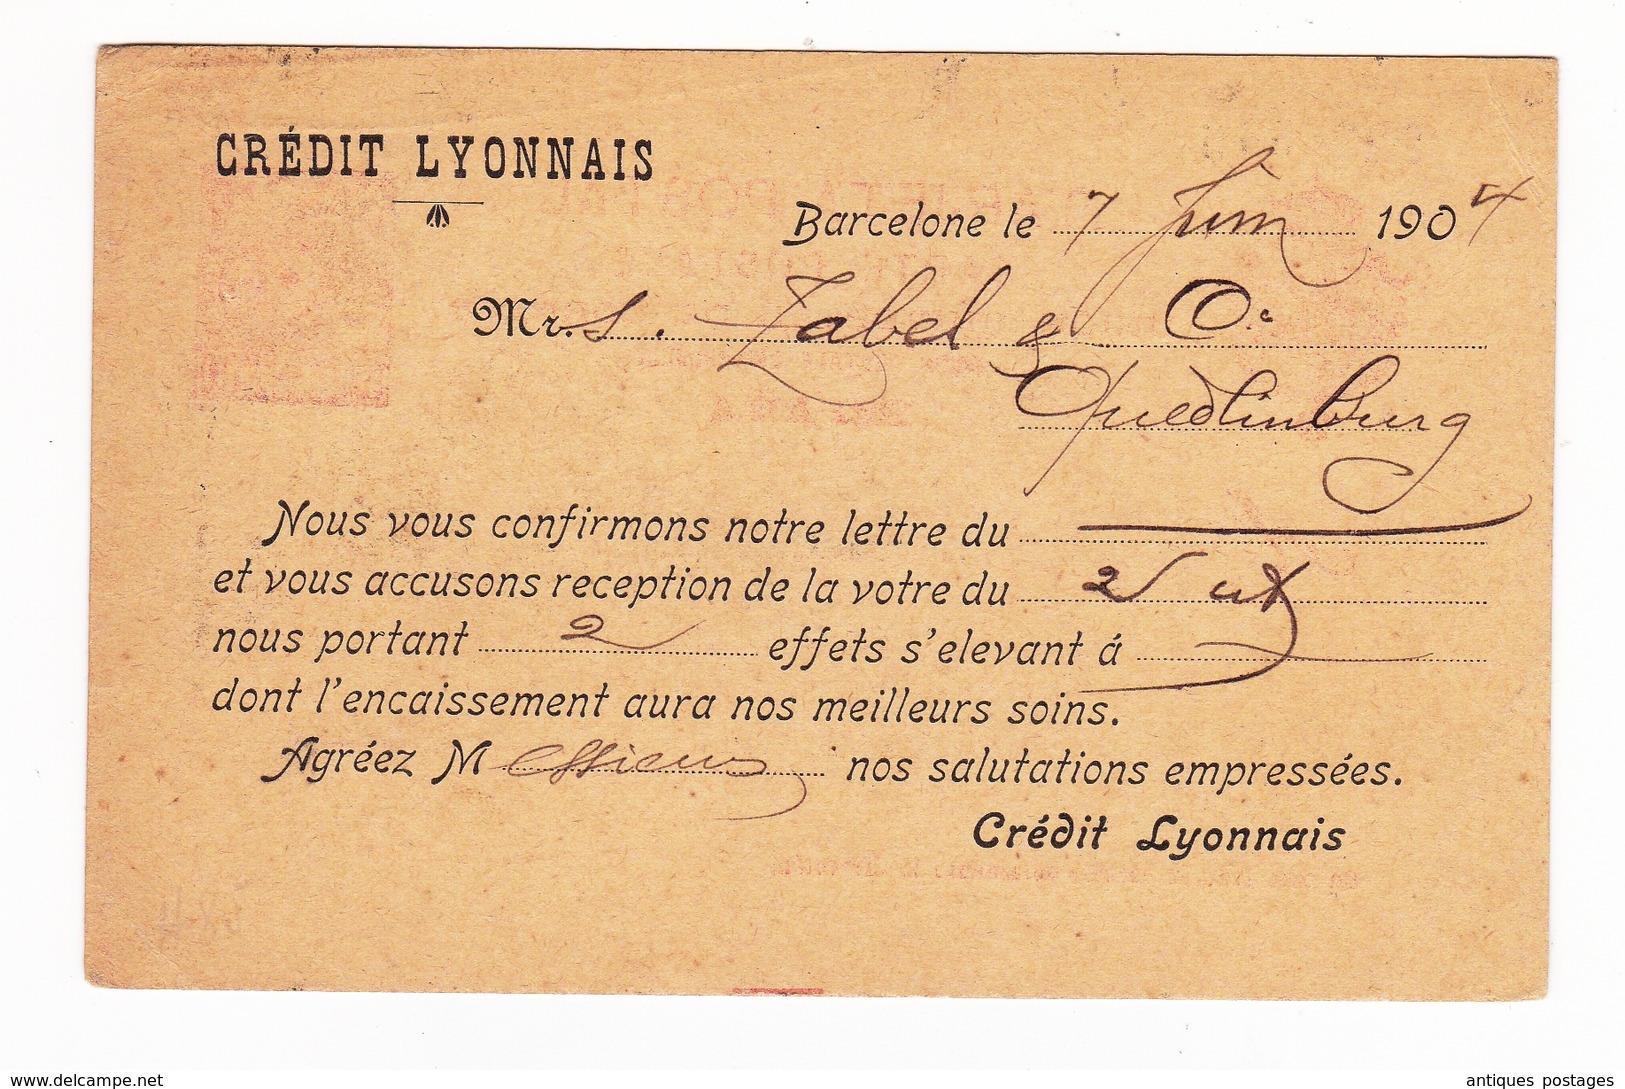 CRÉDIT LYONNAIS
Barcelone le 7 Juin 1904
Mr.s. Zabel & Co.
Quedlinburg
Nous vous confirmons notre lettre du
et vous accusons reception de la votre du 2 ct
nous portant 2 effets s'elevant á
dont l'encaissement aura nos meilleurs soins.
Agréez Messieurs nos salutations empressées.
Crédit Lyonnais
www.delcampe.net
antiques postages